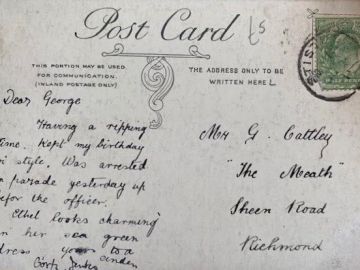 Post Card
THIS PORTION MAY BE USED
FOR COMMUNICATION.
(INLAND POSTAGE ONLY)
THE ADDRESS ONLY TO BE
WRITTEN HERE
Dear George
Having a ripping
time. Kept my birthday
in style. Was arrested
parade yesterday up
before the officer.
Ethel looks charming
in her sea green
dress
Mr G. Cattley
"The Meath"
Sheen Road
Richmond